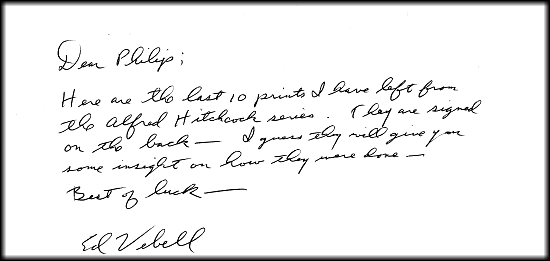 Dear Philip;
Here are the last 10 prints I have left from
the Alfred Hitchcock series. They are signed
on the back — I guess they will give you
some insight on how they were done —
Best of luck —
Ed Vebell